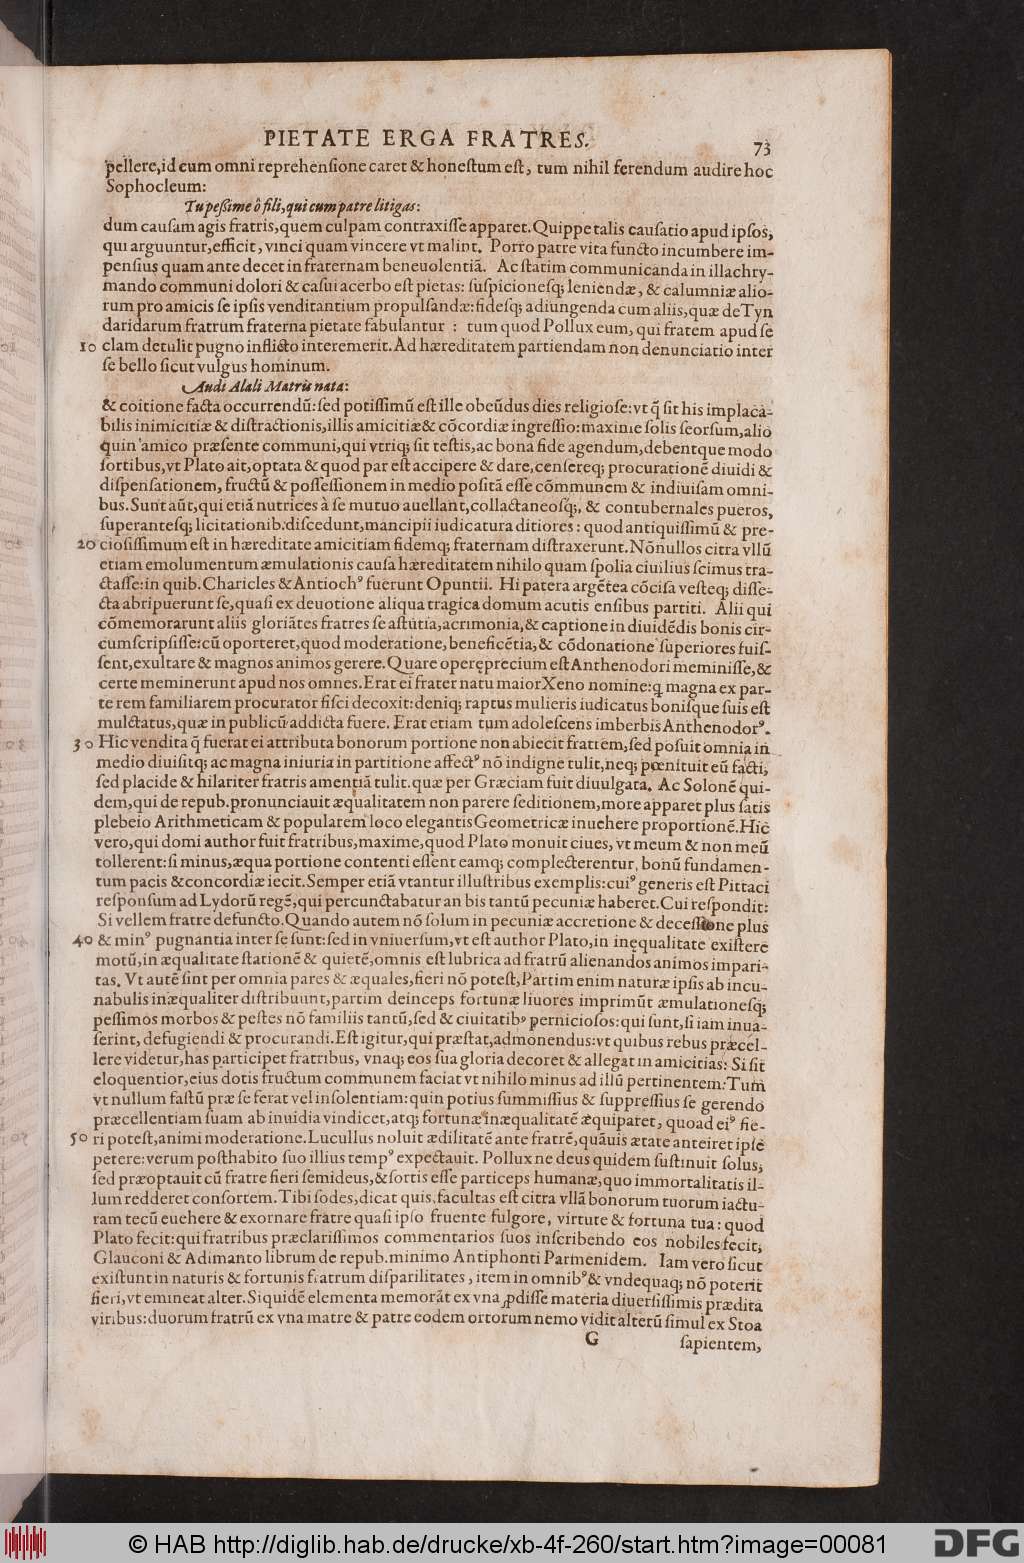 PIETATE ERGA FRATRES. 73
pellere, id cum omni reprehensione caret & honestum est, tum nihil ferendum audire hoc
Sophocleum:
Tu peßime ô fili, qui cum patre litigas:
dum causam agis fratris, quem culpam contraxisse apparet. Quippe talis causatio apud ipsos,
qui arguuntur, efficit, vinci quam vincere vt malint. Porro patre vita functo incumbere im-
pensius quam ante decet in fraternam beneuolentiã. Ac statim communicanda in illachry-
mando communi dolori & casui acerbo est pietas: suspicionesq; leniendæ, & calumniæ alio-
rum pro amicis se ipsis venditantium propulsandæ: fidesq; adiungenda cum aliis, quæ de Tyn
daridarum fratrum fraterna pietate fabulantur : tum quod Pollux eum, qui fratem apud se
10 clam detulit pugno inflicto interemerit. Ad hæreditatem partiendam non denunciatio inter
se bello sicut vulgus hominum.
Audi Alali Matris nata:
& coitione facta occurrendũ: sed potissimũ est ille obeũdus dies religiose: vt q̃ sit his implaca-
bilis inimicitiæ & distractionis, illis amicitiæ & cõcordiæ ingressio: maxime solis seorsum, alio
quin amico præsente communi, qui vtriq; sit testis, ac bona fide agendum, debentque modo
sortibus, vt Plato ait, optata & quod par est accipere & dare, censereq; procurationẽ diuidi &
dispensationem, fructũ & possessionem in medio positã esse cõmunem & indiuisam omni-
bus. Sunt aũt, qui etiã nutrices à se mutuo auellant, collactaneosq;, & contubernales pueros,
superantesq; licitationib. discedunt, mancipii iudicatura ditiores: quod antiquissimũ & pre-
20 ciosissimum est in hæreditate amicitiam fidemq; fraternam distraxerunt. Nõnullos citra vllũ
etiam emolumentum æmulationis causa hæreditatem nihilo quam spolia ciuilius scimus tra-
ctasse: in quib. Charicles & Antiochꝰ fuerunt Opuntii. Hi patera argẽtea cõcisa vesteq; disse-
cta abripuerunt se, quasi ex deuotione aliqua tragica domum acutis ensibus partiti. Alii qui
cõmemorarunt aliis gloriãtes fratres se astutia, acrimonia, & captione in diuidẽdis bonis cir-
cumscripsisse: cũ oporteret, quod moderatione, beneficẽtia, & cõdonatione superiores fuis-
sent, exultare & magnos animos gerere. Quare operęprecium est Anthenodori meminisse, &
certe meminerunt apud nos omnes. Erat ei frater natu maior Xeno nomine: q magna ex par-
te rem familiarem procurator fisci decoxit: deniq; raptus mulieris iudicatus bonisque suis est
mulctatus, quæ in publicũ addicta fuere. Erat etiam tum adolescens imberbis Anthenodorꝰ.
30 Hic vendita q̃ fuerat ei attributa bonorum portione non abiecit fratrem, sed posuit omnia in
medio diuisitq; ac magna iniuria in partitione affectꝰ nõ indigne tulit, neq; pœnituit eũ facti,
sed placide & hilariter fratris amentiã tulit. quæ per Græciam fuit diuulgata. Ac Solonẽ qui-
dem, qui de repub. pronunciauit æqualitatem non parere seditionem, more apparet plus satis
plebeio Arithmeticam & popularem loco elegantis Geometricæ inuehere proportionẽ. Hic
vero, qui domi author fuit fratribus, maxime, quod Plato monuit ciues, vt meum & non meũ
tollerent: si minus, æqua portione contenti essent eamq; complecterentur, bonũ fundamen-
tum pacis & concordiæ iecit. Semper etiã vtantur illustribus exemplis: cuiꝰ generis est Pittaci
responsum ad Lydorũ regẽ, qui percunctabatur an bis tantũ pecuniæ haberet. Cui respondit:
Si vellem fratre defuncto. Quando autem nõ solum in pecuniæ accretione & decessione plus
40 & minꝰ pugnantia inter se sunt: sed in vniuersum, vt est author Plato, in inęqualitate existere
motũ, in æqualitate stationẽ & quietẽ, omnis est lubrica ad fratrũ alienandos animos impari-
tas. Vt autẽ sint per omnia pares & æquales, fieri nõ potest, Partim enim naturæ ipsis ab incu-
nabulis inæqualiter distribuunt, partim deinceps fortunæ liuores imprimũt æmulationesq;
pessimos morbos & pestes nõ familiis tantũ, sed & ciuitatibꝰ perniciosos: qui sunt, si iam inua-
serint, defugiendi & procurandi. Est igitur, qui præstat, admonendus: vt quibus rebus præcel-
lere videtur, has participet fratribus, vnaq; eos sua gloria decoret & allegat in amicitias: Si sit
eloquentior, eius dotis fructum communem faciat vt nihilo minus ad illũ pertinentem: Tum
vt nullum fastũ præ se ferat vel insolentiam: quin potius summissius & suppressius se gerendo
præcellentiam suam ab inuidia vindicet, atq; fortunæ inæqualitatẽ æquiparet, quoad eiꝰ fie-
50 ri potest, animi moderatione. Lucullus noluit ædilitatẽ ante fratrẽ, quãuis ætate anteiret ipse
petere: verum posthabito suo illius tempꝰ expectauit. Pollux ne deus quidem sustinuit solus,
sed præoptauit cũ fratre fieri semideus, & sortis esse particeps humanæ, quo immortalitatis il-
lum redderet consortem. Tibi sodes, dicat quis, facultas est citra vllã bonorum tuorum iactu-
ram tecũ euehere & exornare fratre quasi ipso fruente fulgore, virtute & fortuna tua: quod
Plato fecit: qui fratribus præclarissimos commentarios suos inscribendo eos nobiles fecit,
Glauconi & Adimanto librum de repub. minimo Antiphonti Parmenidem. Iam vero sicut
existunt in naturis & fortunis fratrum disparilitates, item in omnibꝰ & vndequaq; nõ poterit
fieri, vt emineat alter. Siquidẽ elementa memorãt ex vna ꝓdisse materia diuersissimis prædita
viribus: duorum fratrũ ex vna matre & patre eodem ortorum nemo vidit alterũ simul ex Stoa
G sapientem,
© HAB http://diglib.hab.de/drucke/xb-4f-260/start.htm?image=00081
DFG